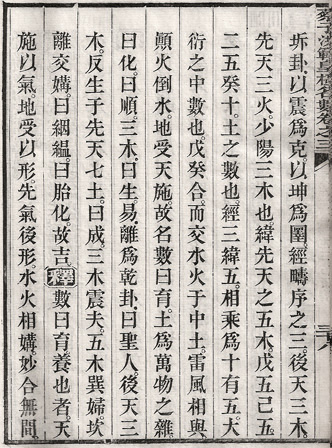 坼卦以震爲克以坤爲圉經疇序之三後天三木
先天三火少陽三木也緯先天之五木戊五己五
二五癸十土之數也經三緯五相乘爲十有五大
衍之中數也戊癸合而交水火于中土雷風相與
顛火倒水地受天施故名數曰育土爲萬物之雜
曰化曰順三木曰生易離爲乾卦曰聖人後天三
木反生于先天七土曰成三木震夫五木巽婦坎
離交媾曰絪縕曰胎化故吉釋數曰育養也者天
施以氣地受以形先氣後形水火相媾妙合無間